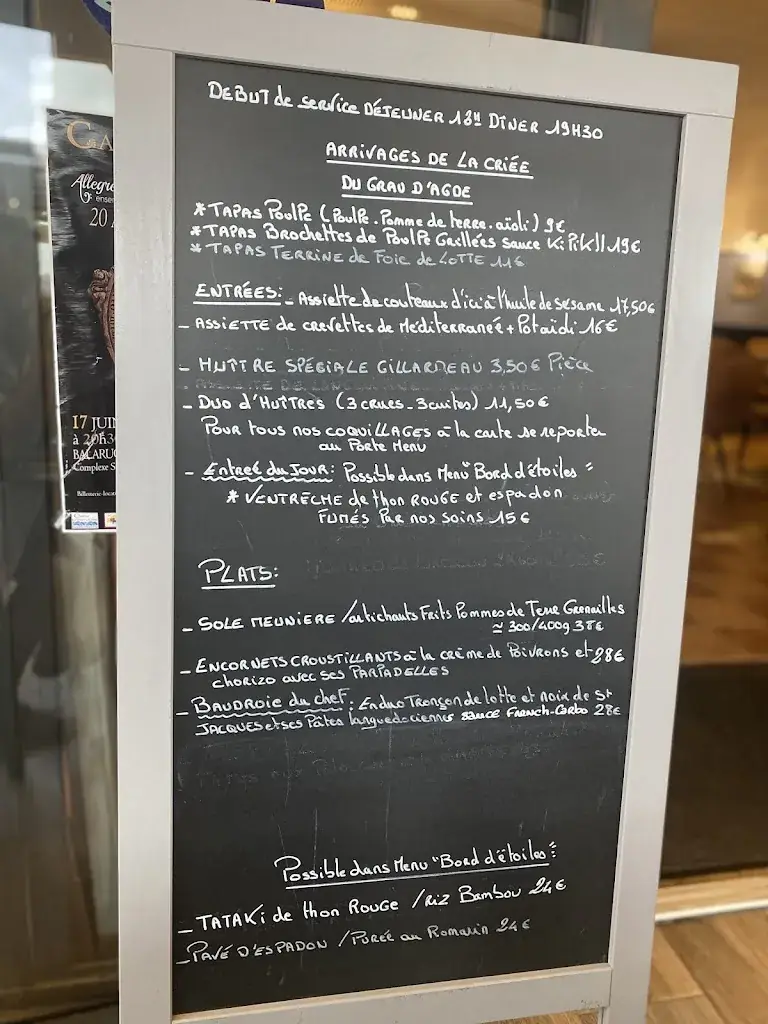 DEBUT de service DÉJEUNER 12H DÎNER 19H30
ARRIVAGES DE LA CRIÉE
DU GRAU D'AGDE
* TAPAS Poulpe (Poulpe. Pomme de terre. aïoli) 9€
* TAPAS Brochettes de Poulpe Grillées sauce Ki Pik!! 19€
* TAPAS TERRINE de Foie de LOTTE 11€
ENTRÉES: - Assiette de couteaux d'ici à l'huile de sésame 17,50€
- ASSIETTE de crevettes de Méditerranée + Pot aïoli 16€
- HUÎTRE SPÉCIALE GILLARDEAU 3,50€ Pièce
- DUO d'HUÎTRES (3 crues - 3 cuites) 11,50€
POUR TOUS NOS COQUILLAGES à la carte se reporter
au Porte Menu
- Entrée du JOUR: Possible dans Menu "Bord d'étoiles"
* VENTRÈCHE de thon ROUGE et espadon
FUMÉS PAR nos soins 15€
PLATS:
- SOLE MEUNIERE / artichauts Frits Pommes de Terre Grenailles
≃ 300/400g 38€
- ENCORNETS CROUSTILLANTS à la crème de Poivrons et 28€
chorizo avec ses PARPADELLES
- BAUDROIE du chef: En duo Tronçon de lotte et noix de St
JACQUES et ses Pâtes languedociennes sauce FRENCH-Carbo 28€
Possible dans Menu "Bord d'étoiles":
- TATAKI de thon Rouge / RIZ Bambou 24€
- PAVÉ D'ESPADON / PURÉE au Romarin 24€
Allegre
20
17 JUIN
à 20h3
BALARUC
Complexe S